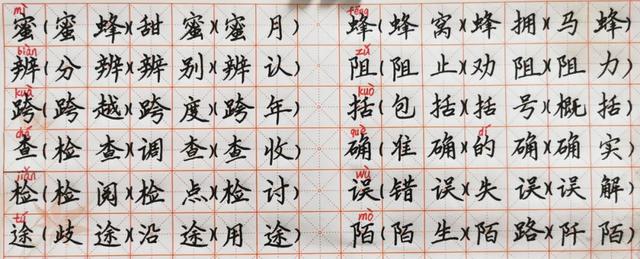 mì fēng
蜜(蜜蜂)(甜蜜)(蜜月) 蜂(蜂窝)(蜂拥)(马蜂)
biàn zǔ
辨(分辨)(辨别)(辨认) 阻(阻止)(劝阻)(阻力)
kuà kuò
跨(跨越)(跨度)(跨年) 括(包括)(括号)(概括)
chá què dí
查(检查)(调查)(查收) 确(准确)(的确)(确实)
jiǎn wù
检(检阅)(检点)(检讨) 误(错误)(失误)(误解)
tú mò
途(歧途)(沿途)(用途) 陌(陌生)(陌路)(阡陌)